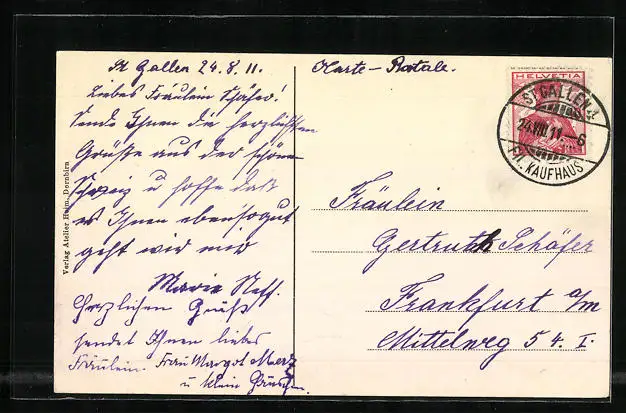 St Gallen 24.8.11.
Liebes Fräulein Schäfer!
Sende Ihnen die herzlichsten
Grüße aus der schönen
Schweiz u hoffe daß
es Ihnen ebensogut
geht wie mir
Marie Neff.
Herzlichen Gruß
sendet Ihnen liebes
Fräulein. Frau Margot Merz
u klein
Verlag Atelier Heim, Dornbirn
Carte-Postale.
HELVETIA
ST GALLEN 1
24.VIII.11 6
FIL. KAUFHAUS
Fräulein
Gertruth Schäfer
Frankfurt a/m
Mittelweg 54. I.